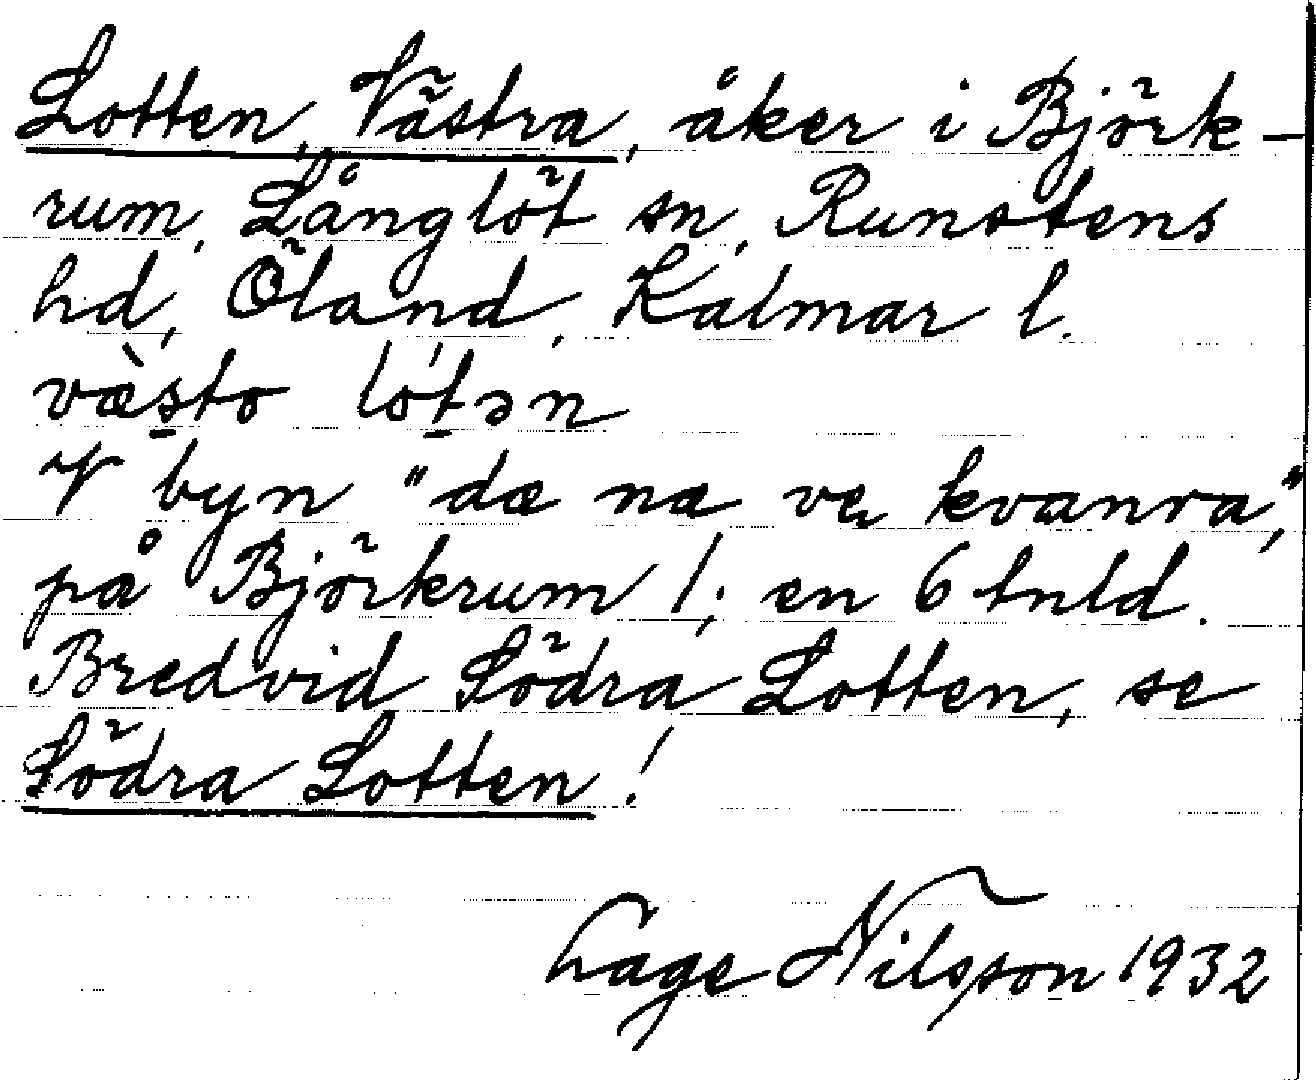 Lotten, Västra, åker i Björk-
rum, Långlöt sn, Runstens
hd, Öland, Kalmar l.
væ̀sto lótən
V byn "dæ næ væ kvanra",
på Björkrum 1; en 6 tnld.
Bredvid Södra Lotten, se
Södra Lotten!
Lage Nilsson 1932